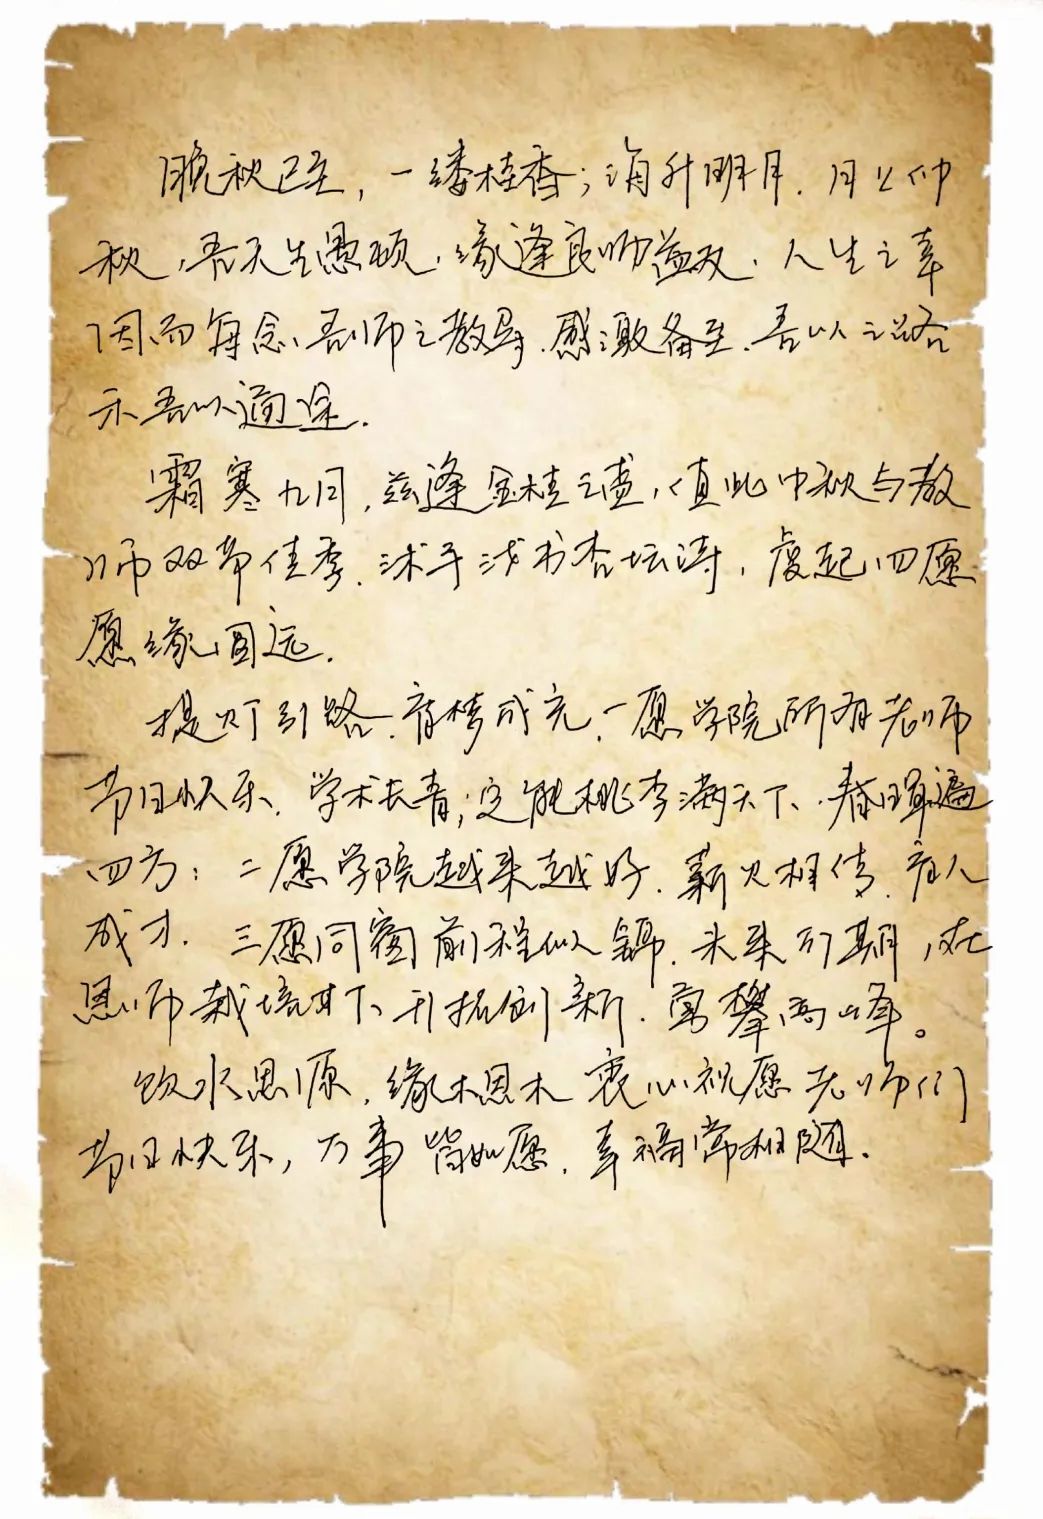 晚秋已至，一缕桂香；海升明月，月以仲
秋，吾天生愚顽，缘逢良师益友，人生之幸
因而每念吾师之教导，感激备至，吾以之路
示吾以通途.
霜寒九月，兹逢金桂之盛，值此中秋与教
师双节佳季，沐手浅书杏坛诗，虔起四愿
愿缘圆远.
提灯引路，育梦成光，一愿学院所有老师
节日快乐、学术长青；定能桃李满天下、春晖遍
四方；二愿学院越来越好，薪火相传，育人
成才.三愿同窗前程似锦，未来可期，在
恩师栽培其下开拓创新，勇攀高峰。
饮水思源，缘木思木衷心祝愿老师们
节日快乐，万事皆如愿，幸福常相随.